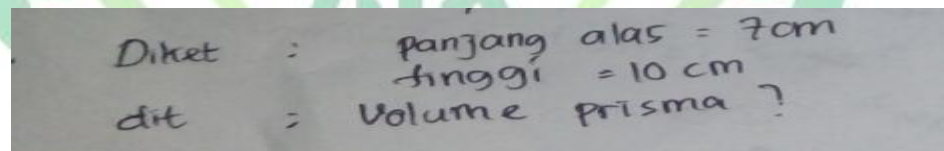 Diket : panjang alas = 7cm
tinggi = 10 cm
dit : Volume prisma ?